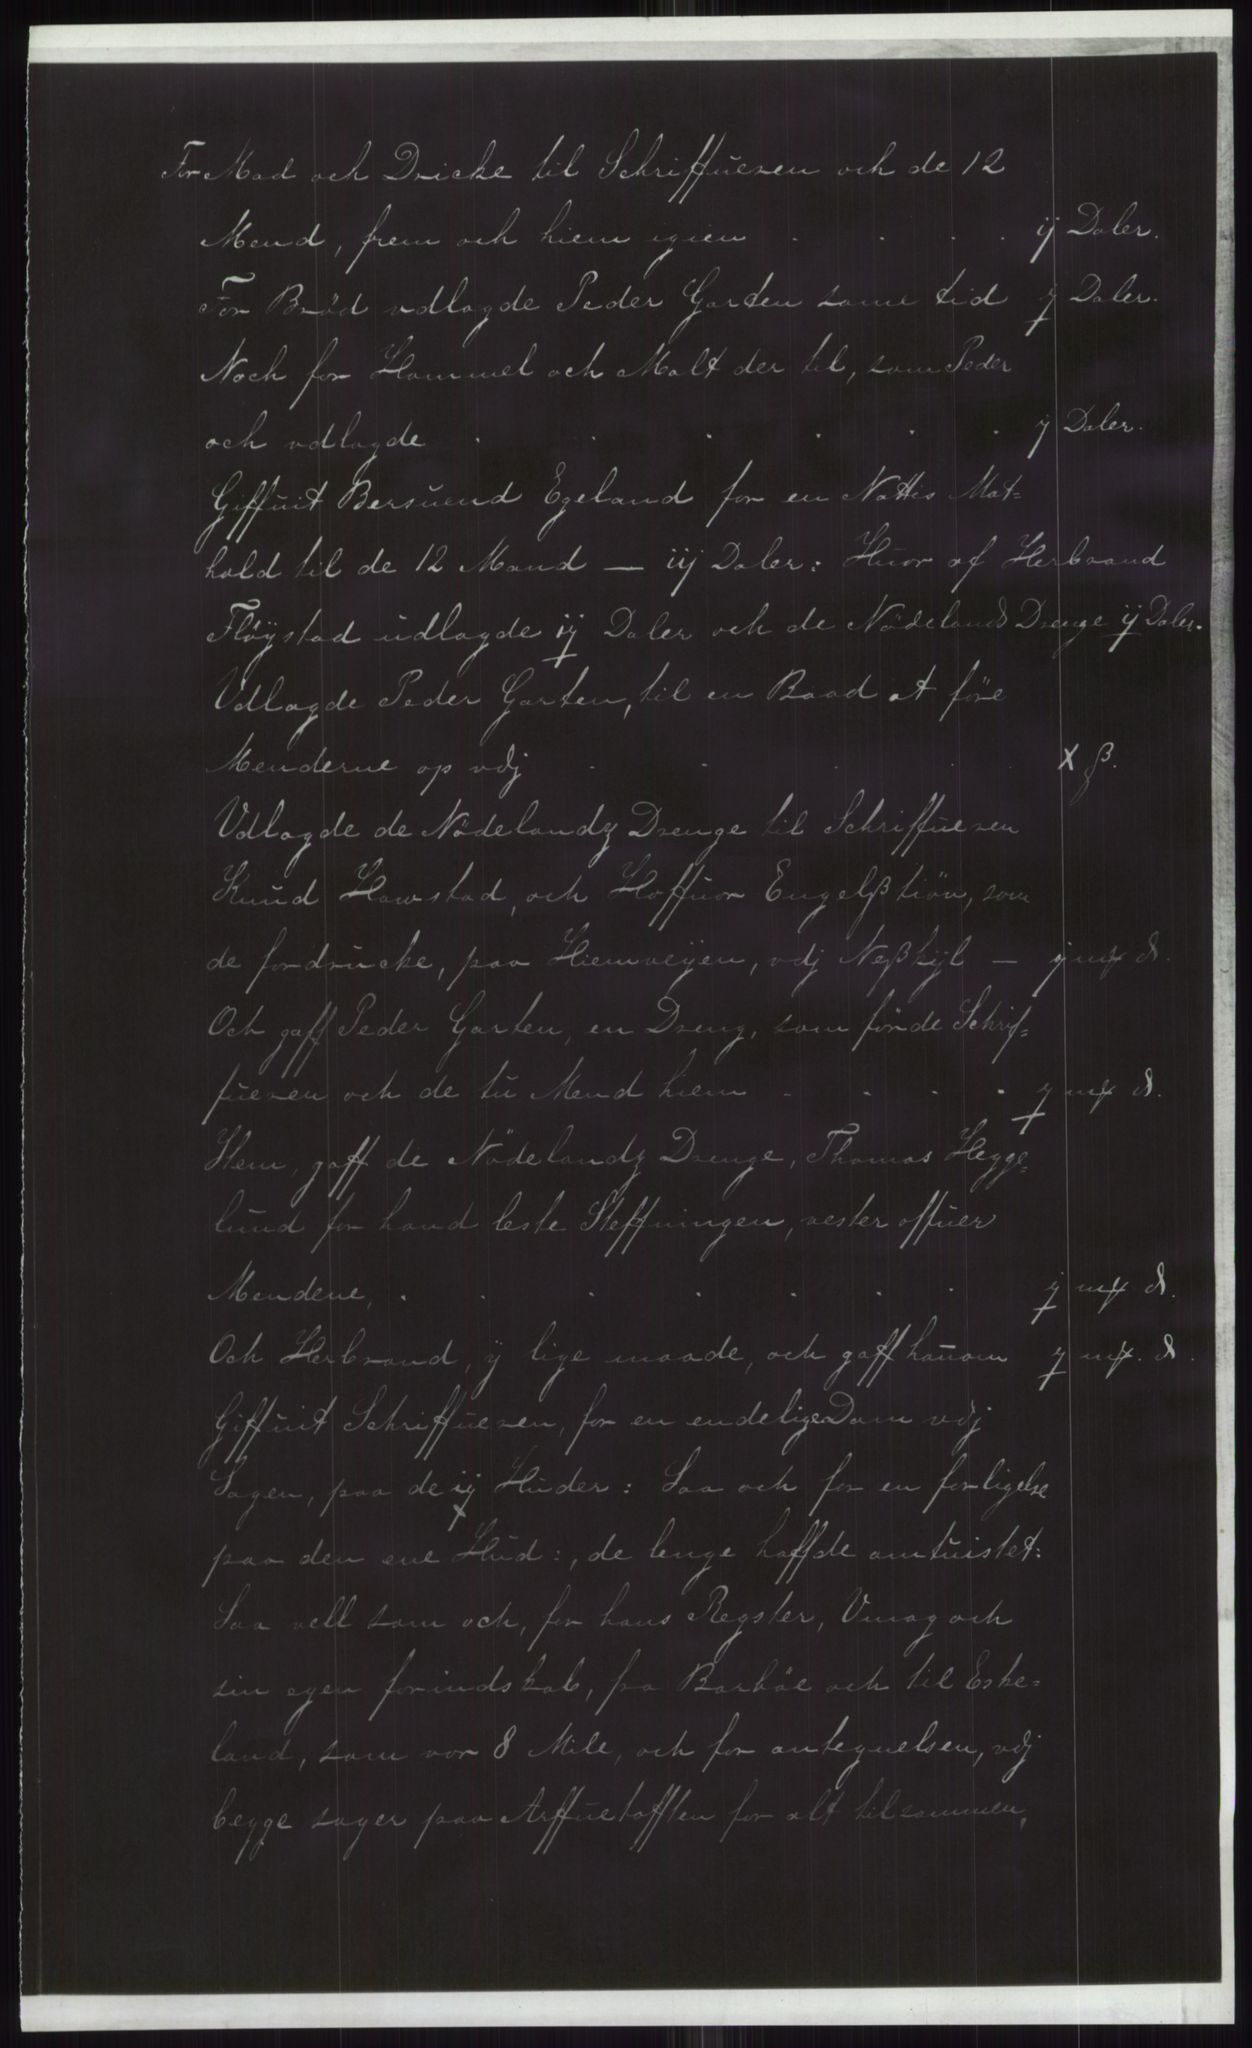 For Mad och Dricke til Schriffueren och de 12
Mend, frem och hiem igien . . . . ij Daler.
For Brød vdlagde Peder Garten same tid j Daler.
Noch for Hommel och Malt der til, som Peder
och vdlagde . . . . . . j Daler.
Giffuit Bersuend Egeland for en Nattis Mat=
hold til de 12 Mand — iij Daler: Huor af Herbrand
Fløystad udlagde ij Daler och de Nødelands Drenge ij Daler.
Vdlagde Peder Garten, til en Baad at føre
Menderne op vdj . . . . . x ß.
Vdlagde de Nødelandz Drenge til Schriffueren
Knud Hawstad, och Hoffuor Engelßtiøn, som
de fordrucke, paa Hiemveyen, vdj Neßkijl — j mꝶ d.
Och gaff Peder Garten, en Dreng, som førde Schrif=
fueren och de tu Mend hiem . . . . j mꝶ d.
Item, gaff de Nødelandz Drenge, Thomas Hegge=
lund for hand leste Steffningen, vester offuer
Mendene, . . . . . . . j mꝶ d.
Och Herbrand, ÿ lige maade, och gaff hanom j mꝶ. d.
Giffuit Schriffueren, for en endelige Dom vdj
Sagen, paa de ij Huder: Saa och for en forligelse
paa den ene Hud:, de lenge haffde omtuistet:
Saa vell som och, for hans Regster, Vmag och
sin egen forindskab, fra Barbøe och til Eske=
land, som vor 8 Mile, och for antegnelsen, vdj
begge sager paa Arffuetafflen for alt tilsammen,